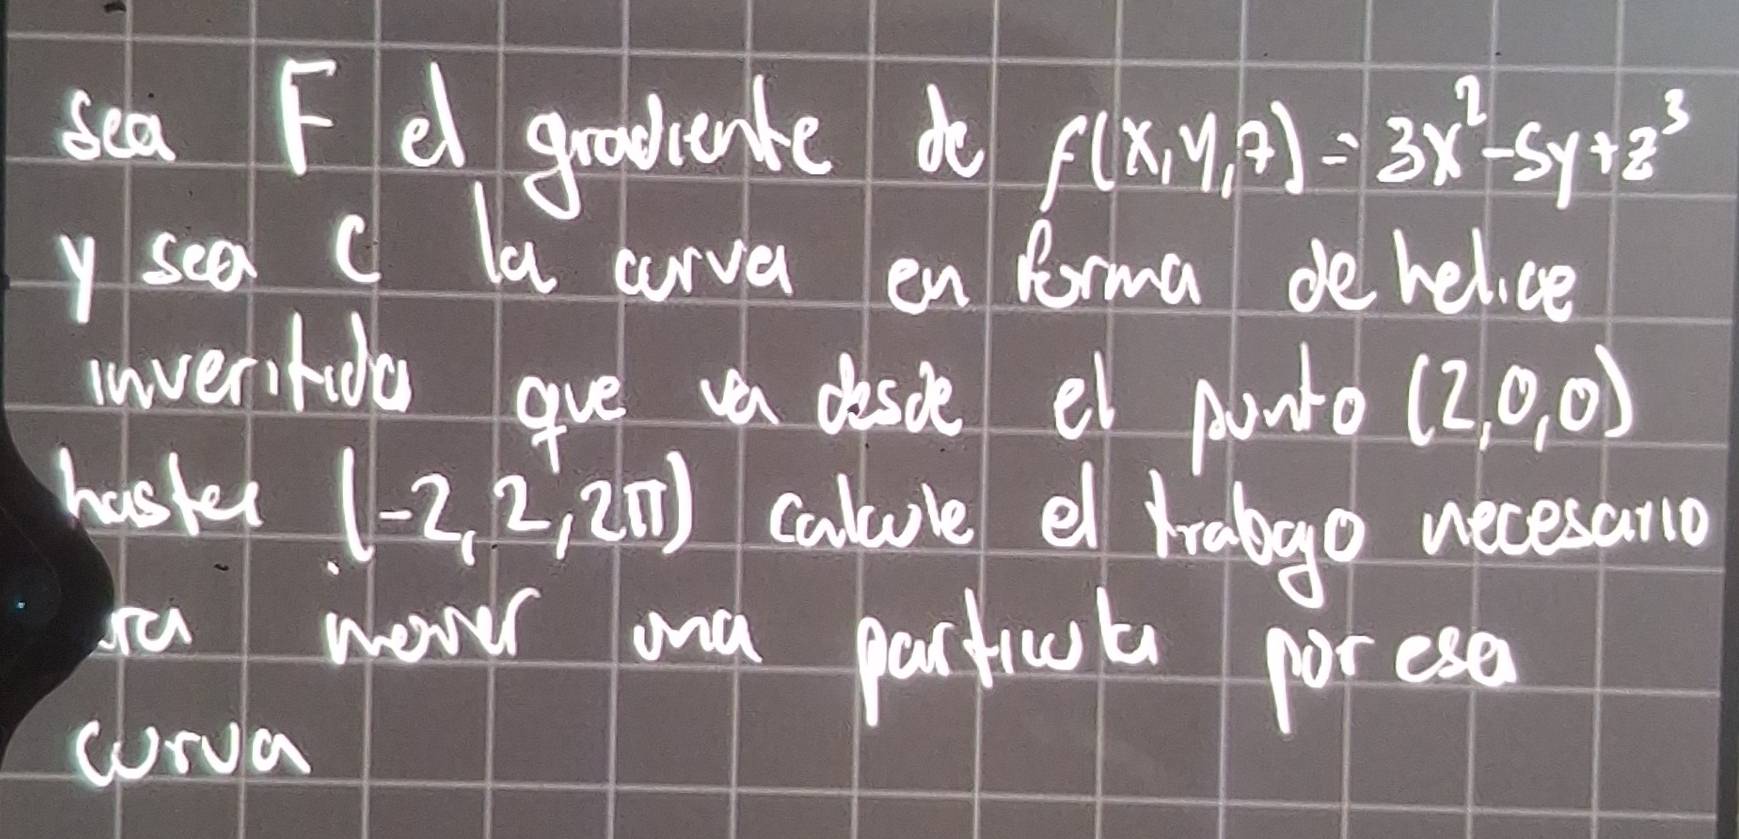 sea F el gradiente de f(x,y,z) = 3x²-5y+z³
y sea C la curva en forma de helice
inveritida que va desde el punto (2,0,0)
hasta (-2,2,2π) calcule el trabajo necesario
ra mover una particula por esa
curva